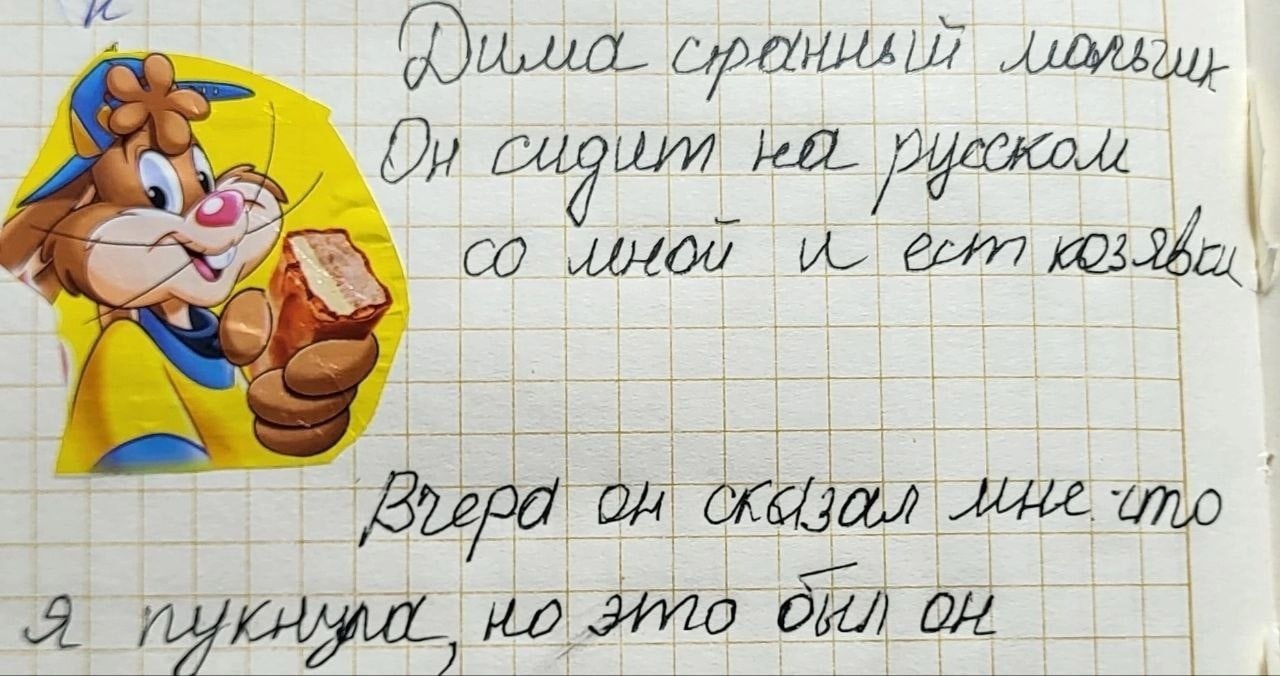 Дима странный мальчик
Он сидит на русском
со мной и ест козявки
Вчера он сказал мне что
я пукнула, но это был он